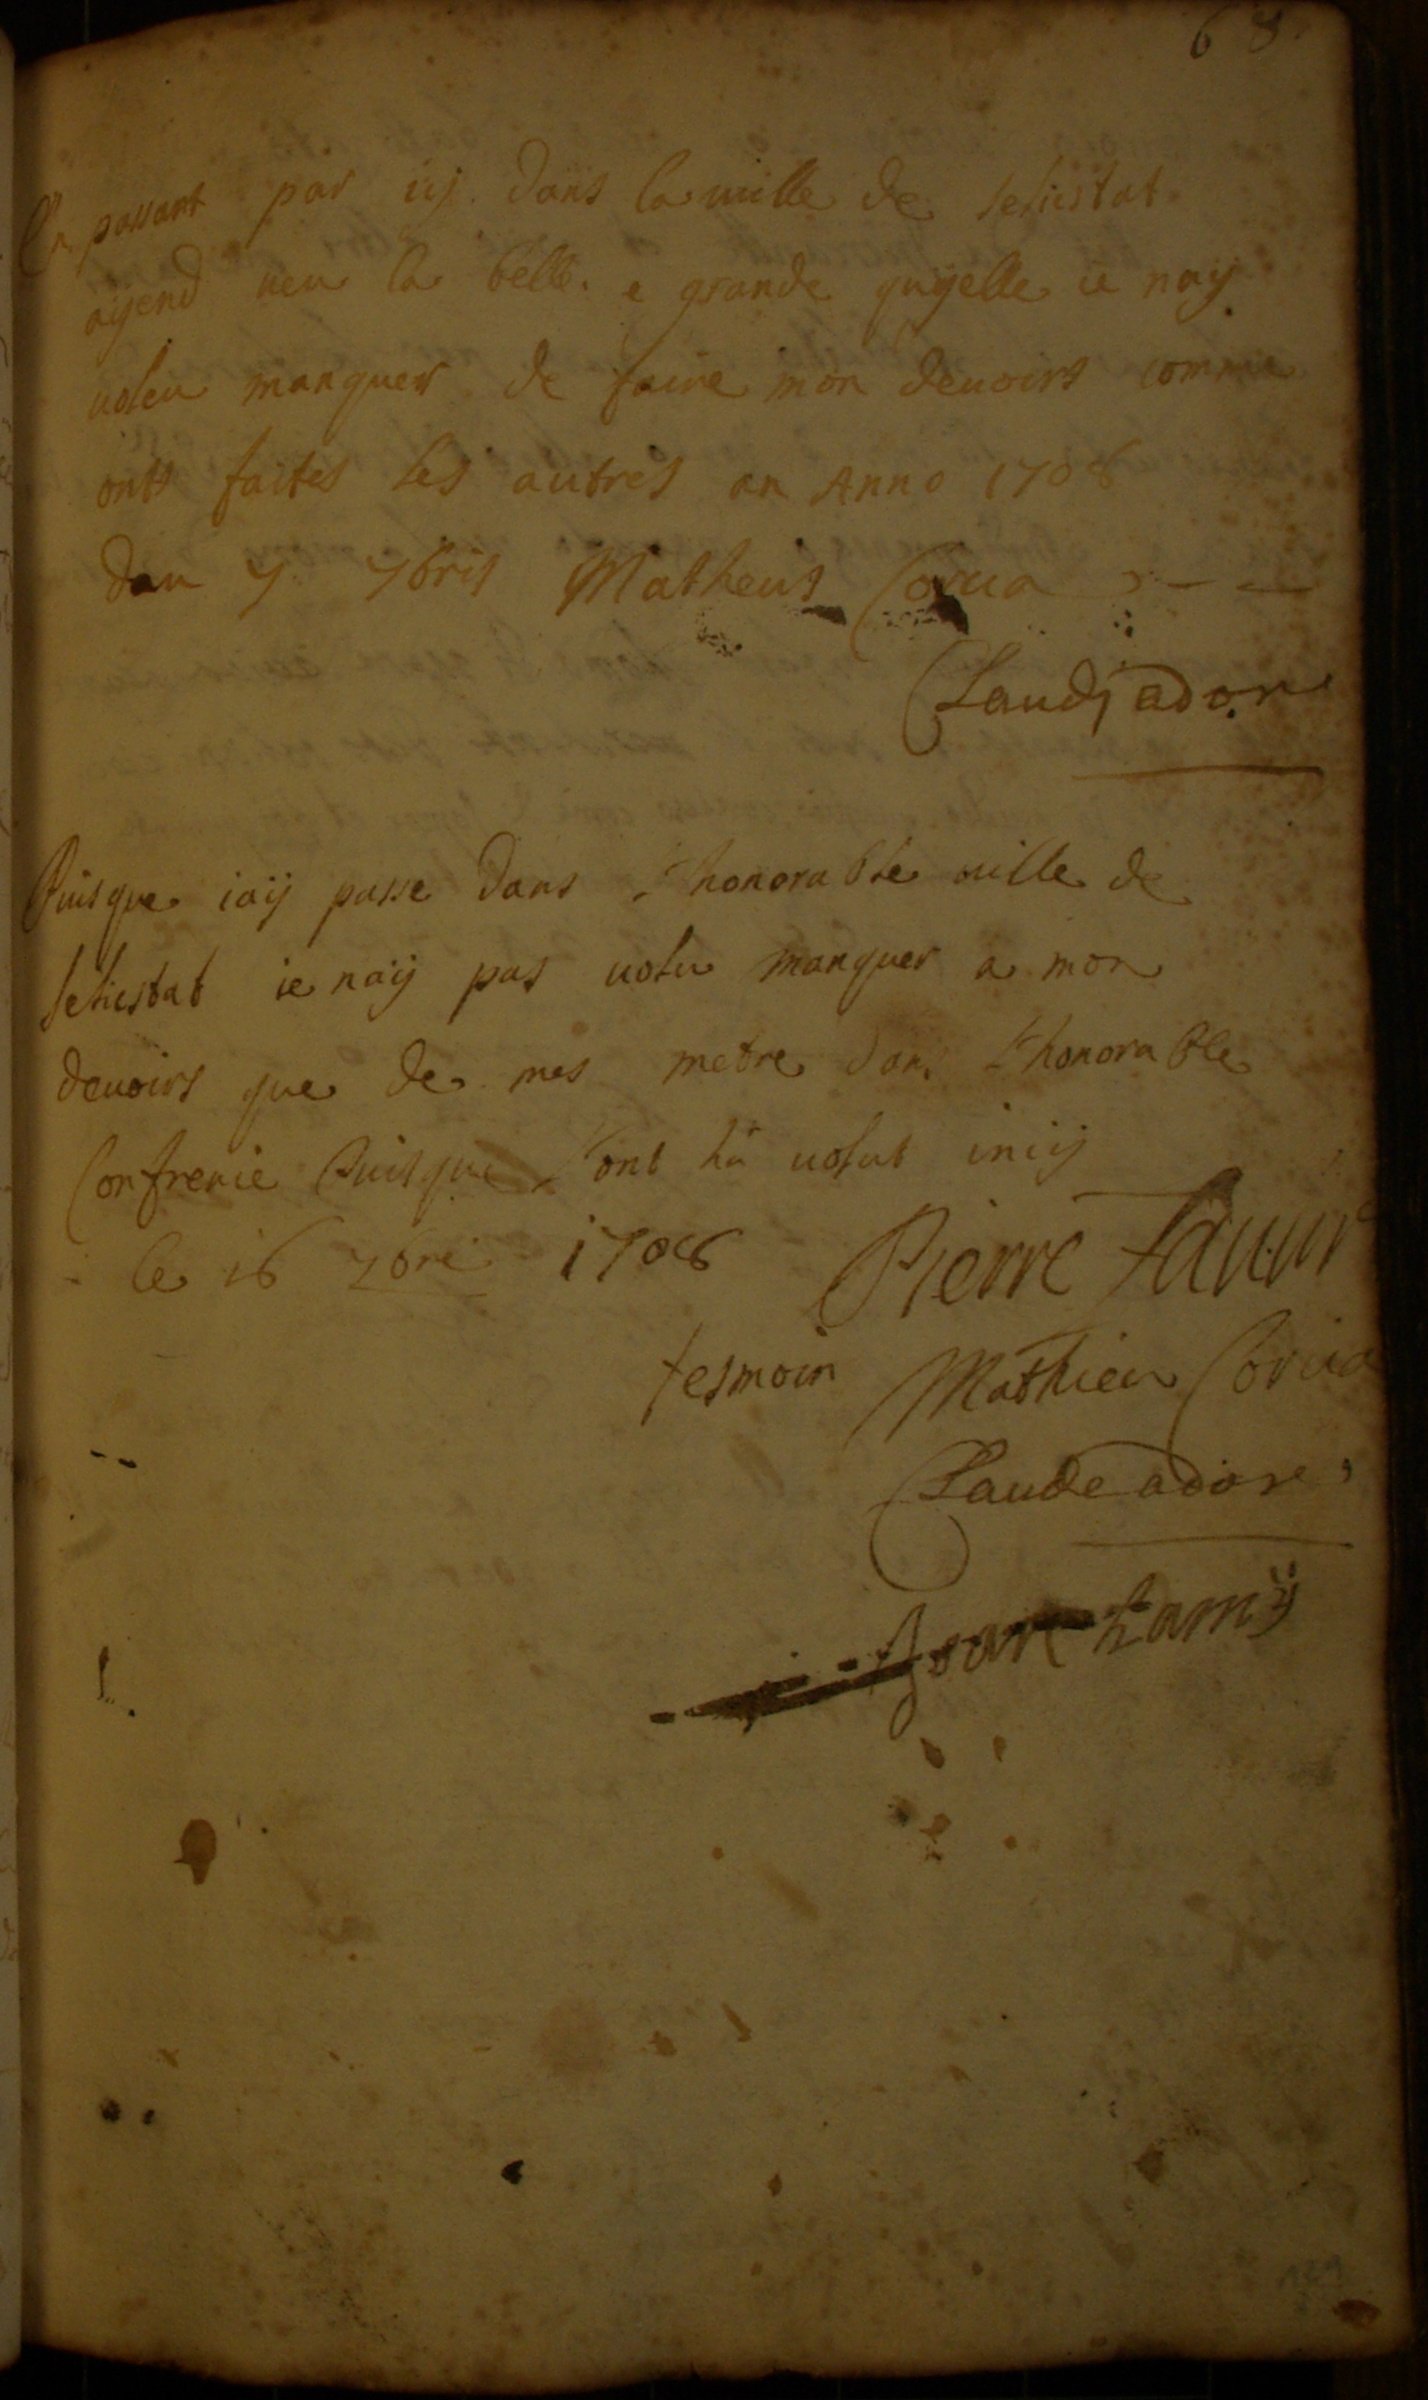 68
En passant par isÿ dans la uille de selestat
aÿend ueu la belle e grande quÿelle ie naÿ
uoleu manquer de faire mon deuoirs comme
onts faites les autres an Anno 1708
den 7 7bris Matheus Corua
Claudj adore
Puisque iaÿ passe dans lhonorable uille de
selestat ie naÿ pas uolu manquer a mon
deuoirs que de mes metre dans lhonorable
Confrerie Puisque lont la uolut iniÿ
le 16 7bre 1708 Pierre
tesmoin Mathieu Corua
Claude adore
Lamÿ
129